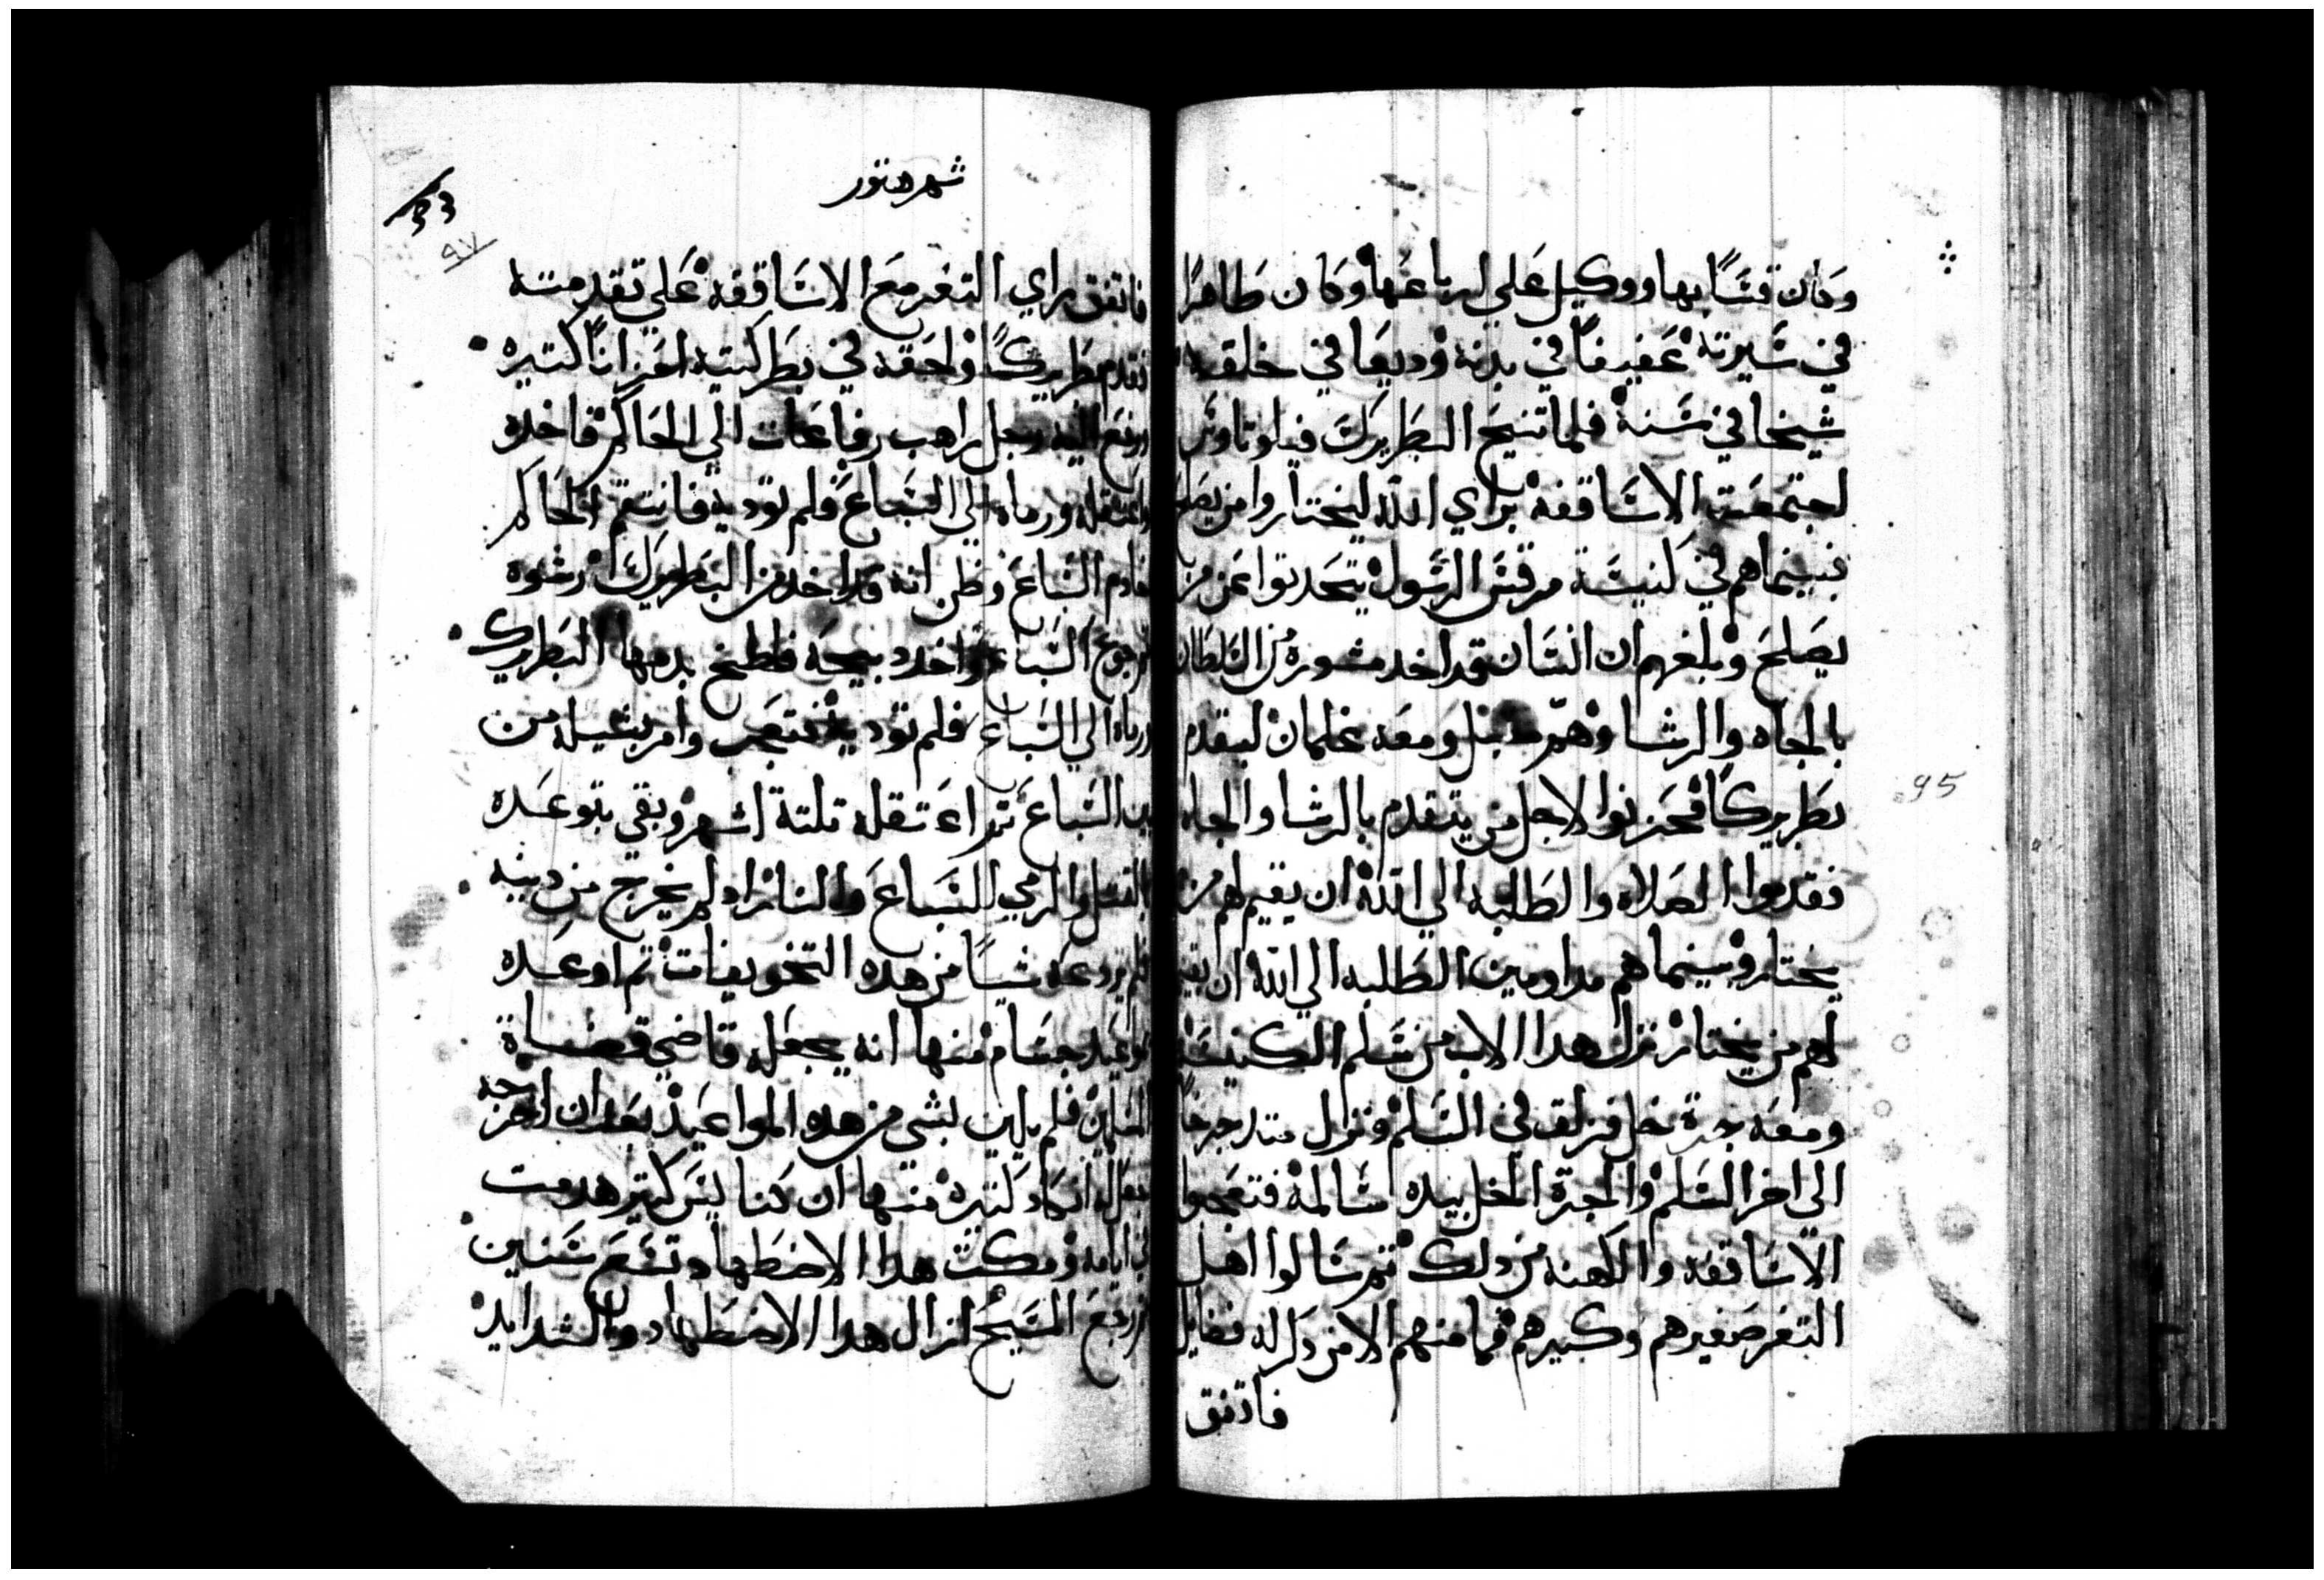 وكان قسًا بها ووكيل علي ارباعها وكان طاهرًا
في سيرته عفيفًا في بدنه وديعا في خلقه
شيخا في سنه فلما تنيح البطريرك فيلوتاوس
اجتمعت الاساقفه براي الله ليختاروا من يصلح
فبينما هم في كنيسة مرقس الرسول يتحدتوا عمن
يصلح وبلغهم ان انسان قد اخد مشورة من السلطان
بالجاه والرشا وهو مقبل ومعه غلمان ليقدم
بطريركًا فحزنوا لاجل من يتقدم بالرشا والجاه
فقدموا الصلاه والطلبه الي الله ان يقيم لهم من
يختار وبينما هم مداومين الطلبه الي الله ان يقيم
لهم من يختار نزل هدا الاب من سلم الكنيسه
ومعه جرة خل فزلق في السلم ونزل متدحرجًا
الي اخر السلم والجرة الخل بيده سالمة فتعجبوا
الاساقفه والكهنه من دلك تم سالوا اهل
التغر صغيرهم وكبيرهم فما منهم الا من دكر له فضايل
فاتفق
95
شهر هتور
33
٩٧
فاتفق راي التغر مع الاساقفه علي تقدمته
فقدم بطريركًا ولحقه في بطركيته احزانًا كتيره
ورفع اليه رجل راهب رفاعات الي الحاكم فاخده
واعتقله ورماه الي السباع فلم توديه فانتقم الحاكم
خادم السباع وظن انه قد اخد من البطريرك رشوه
فجوع السباع واخد دبيحة فلطخ بدمها البطريرك
ورماه الي السباع فلم توديه فتعجب وامر بشيله من
بين السباع تم اعتقله تلتة اشهر وبقي يتوعده
بالقتل والرمي للسباع والنار اد لم يخرج من دينه
فلم يردعه شيًا من هده التخويفات تم اوعده
مواعيد جسام منها انه يجعله قاضي قضاة
المسلمين فلم يلين بشي من هده المواعيد بعد ان اخرجه
كتيرة منها ان كنايس كتير هدمت
في ايامه ومكت هدا الاضطهاد تسع سنين
تم رجع المسيح ازال هدا الاضطهاد والشدايد